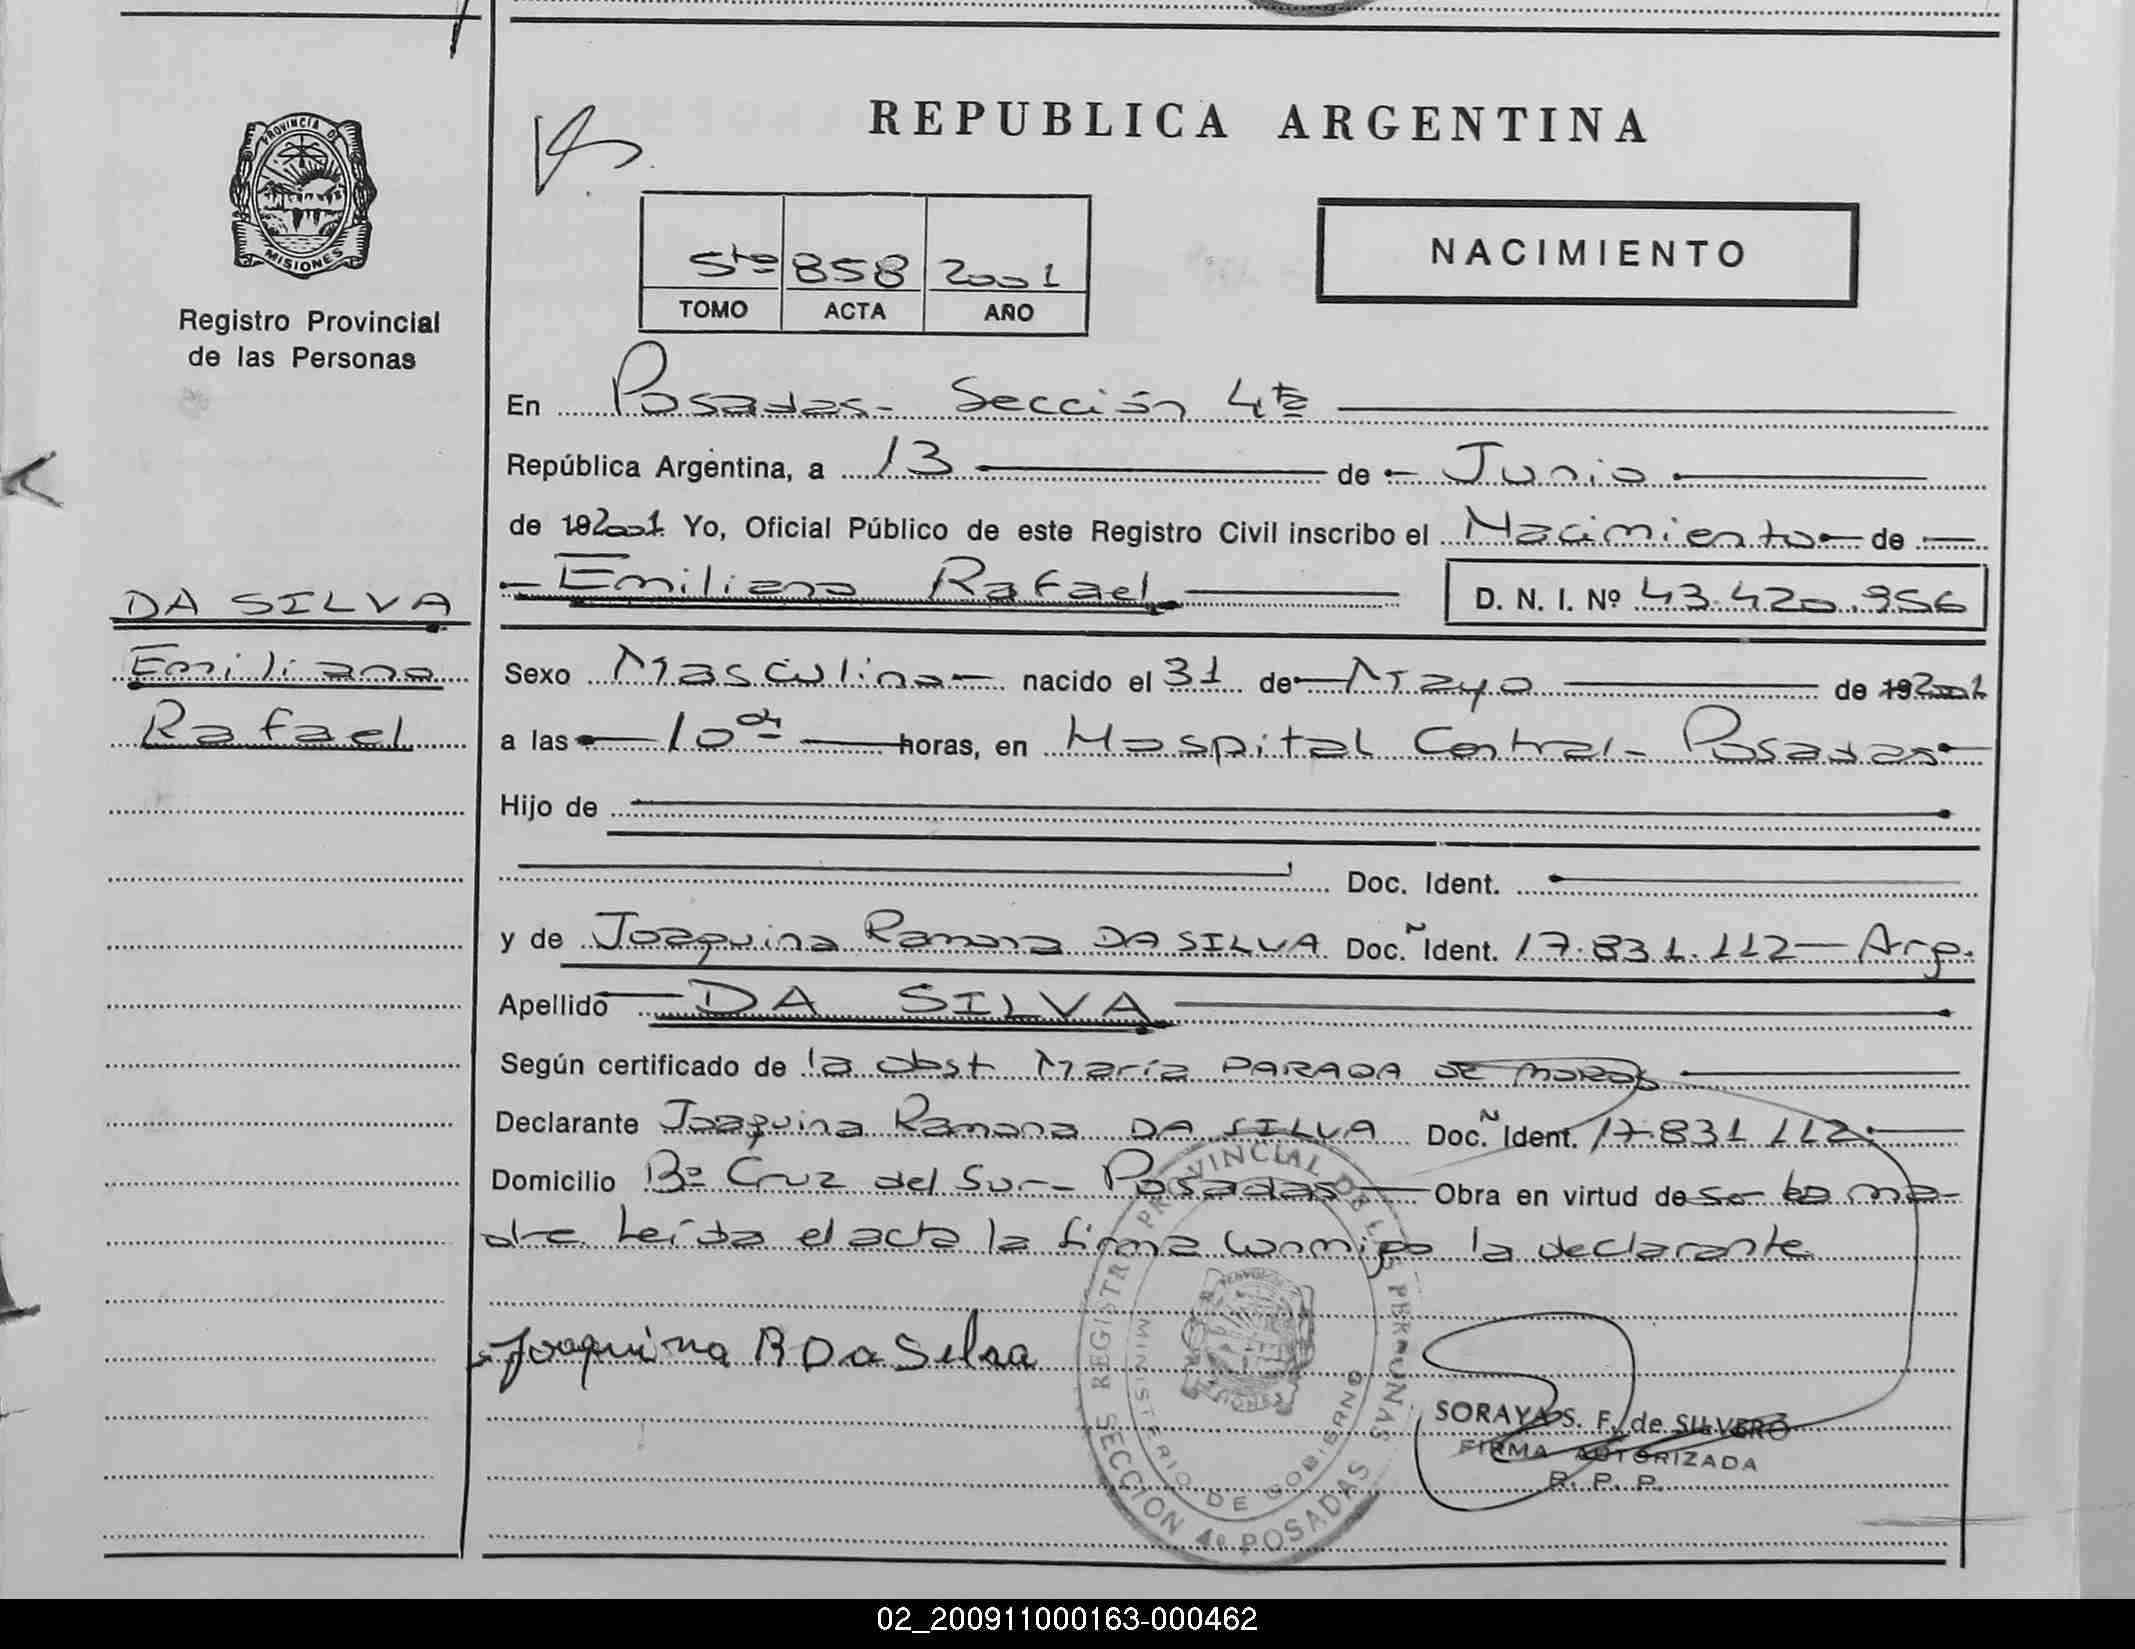 REPUBLICA ARGENTINA
PROVINCIA DE
MISIONES
Registro Provincial
de las Personas
5to 858 2001
TOMO ACTA AÑO
NACIMIENTO
En Posadas - Sección 4ta
República Argentina, a 13 de Junio
de 192001 Yo, Oficial Público de este Registro Civil inscribo el Nacimiento de
Emiliano Rafael D. N. I. Nº 43.420.956
DA SILVA
Emiliano
Rafael
Sexo Masculino nacido el 31 de Mayo de 192001
a las 10 horas, en Hospital Central - Posadas
Hijo de
Doc. Ident.
y de Joaquina Ramona DA SILVA Doc. Ident. 17.831.112 - Arg.
Apellido DA SILVA
Según certificado de la obst María PARADA DE
Declarante Joaquina Ramona DA SILVA Doc. Ident. 17.831.112
Domicilio Bº Cruz del Sur - Posadas Obra en virtud de ser la ma-
dre Leída el acta la firma conmigo la declarante
Joaquina R Da Silva
REGISTRO PROVINCIAL DE LAS PERSONAS
MINISTERIO DE GOBIERNO
SECCION 4º POSADAS
SORAYA S. F. de SILVERO
FIRMA AUTORIZADA
R. P. P.
02_200911000163-000462